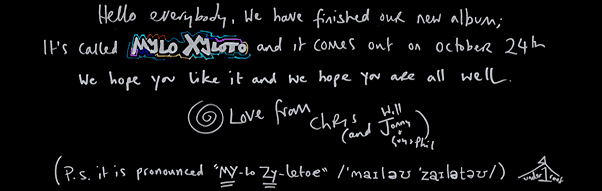 Hello everybody, We have finished our new album;
It's called MYLO XYLOTO and it comes out on october 24th
We hope you like it and we hope you are all well.
Love from Chris (and Will Jonny + Guy + Phil)
(P.s. it is pronounced "MY-lo Zy-letoe" /ˈmaɪləʊ ˈzaɪlətəʊ/)